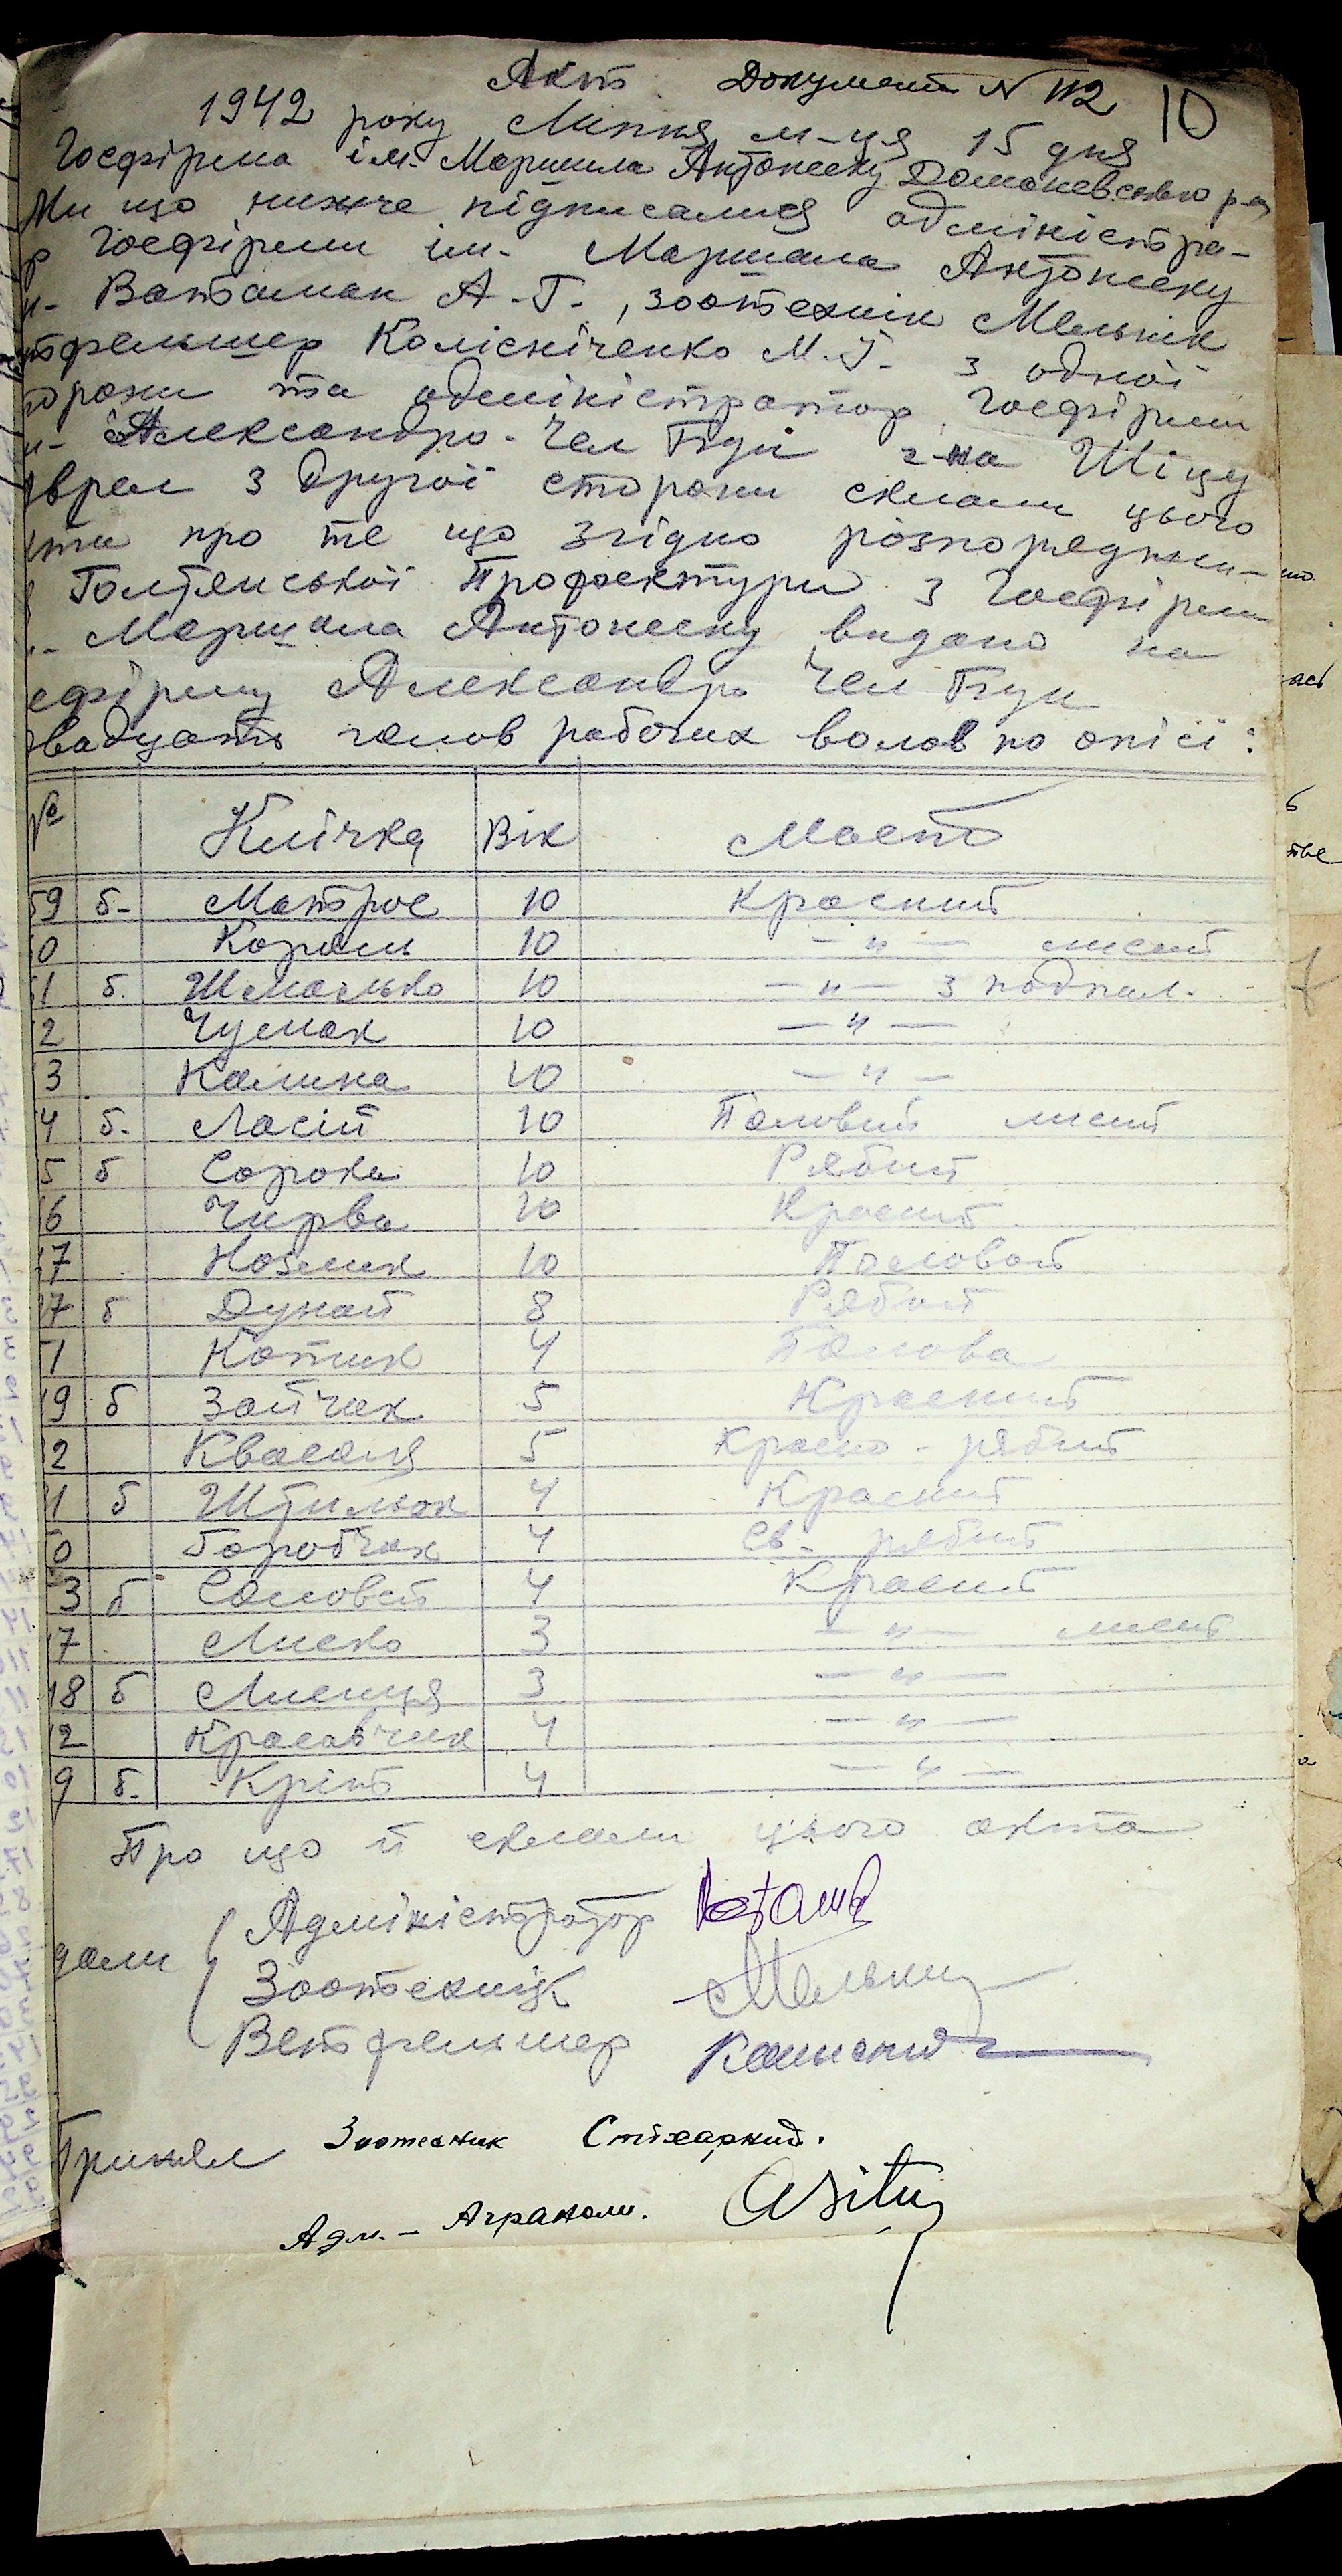 Акт. Документ № 112 10
1942 року Липня м-ця 15 дня
Госфірма ім. Маршала Антонеску Доманевського р-ну
Ми що нижче підписалися адміністра-
р Госфірми ім. Маршала Антонеску
н. Ватаман А. Г., зоотехнік Мельнік
тфельшер Колісніченко М. Г. з одної
торони та адміністратор Госфірми
Александро-Чел Бун г-на Шіцу
врам з другої сторони склали цього
кта про те що згідно розпоряджен-
Голтянської Профектури з Госфірми
Маршала Антонеску видано на
сфірму Александро Чел Бун
двадцять голов рабочих волов по опісі:
№ Клічка Вік Масть
59 б- Матрос 10 Красний
0 Король 10 —"— лисий
51 б. Шмалько 10 —"— з подпал.
2 Чумак 10 —"—
3 Калина 10 —"—
4 б. Лосій 10 Половий лисий
5 б Сорока 10 Рябий
6 Чирва 10 Красний
7 Козлик 10 Половой
7 б Дунай 8 Рябой
1 Котик 4 Полова
9 б Зайчик 5 Красний
2 Квасоля 5 Красно-рябий
1 б Штильок 4 Красний
0 Горобчик 4 Св- рябий
3 б Соловей 4 Красний
7 Лиско 3 —"— лисий
18 б Лисиця 3 —"—
2 Красавчик 4 —"—
9 б. Кріт 4 —"—
Про що й склали цього акта
дали Адміністратор
Зоотехнік Мельник
Ветфельшер
Приняли Зоотехник Стіхарний.
Адм.- Агроном.